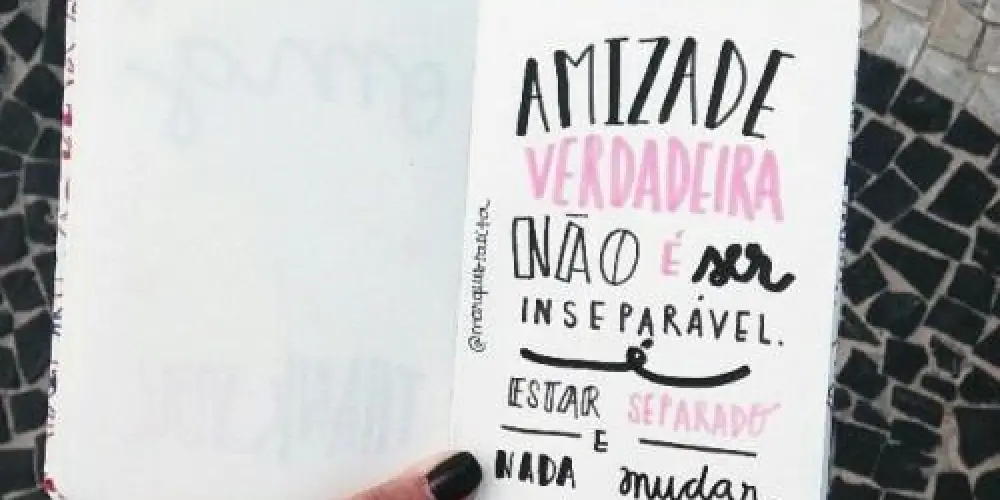 AMIZADE
VERDADEIRA
NÃO É ser
INSEPARÁVEL.
é
ESTAR SEPARADO
E
NADA mudar.